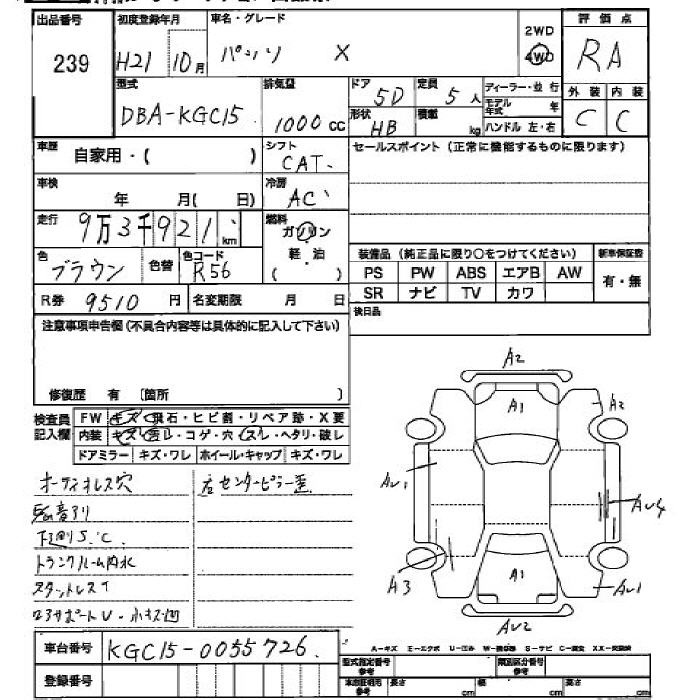 出品番号 239
初度登録年月 H21 10月
車名・グレード パッソ X
2WD 4WD
評価点 RA
型式 DBA-KGC15
排気量 1000 cc
ドア 5D
定員 5人
ディーラー・並行
モデル年式 年
形状 HB
積載 kg
ハンドル 左・右
外装 C 内装 C
車歴 自家用・( )
シフト CAT
セールスポイント(正常に機能するものに限ります)
車検 年 月( 日)
冷房 AC
走行 9万3千921 km
燃料 ガソリン 軽・油 ( )
色 ブラウン 色替 色コード R56
装備品(純正品に限り○をつけてください)
新車保証書 有・無
PS PW ABS エアB AW
SR ナビ TV カワ
R券 9510 円 名変期限 月 日
後日品
注意事項申告欄(不具合内容等は具体的に記入して下さい)
修復歴 有 〔箇所 〕
検査員記入欄
FW キズ・飛石・ヒビ割・リペア跡・X要
内装 キズ・汚レ・コゲ・穴・スレ・ヘタリ・破レ
ドアミラー キズ・ワレ ホイール・キャップ キズ・ワレ
オーディオレス穴
右センターピラー歪
下廻りS、C
トランクルーム内水
スタットレス
A2
A1
A2
AU1
AU4
A3
A1
AU1
AU2
車台番号 KGC15-0055726
登録番号
A-キズ E-エクボ U-凹み W-補修跡 S-サビ C-腐食 XX-交換済
型式指定番号 参考
類別区分番号 参考
車体証明元 参考 長さ cm 幅 cm 高さ cm